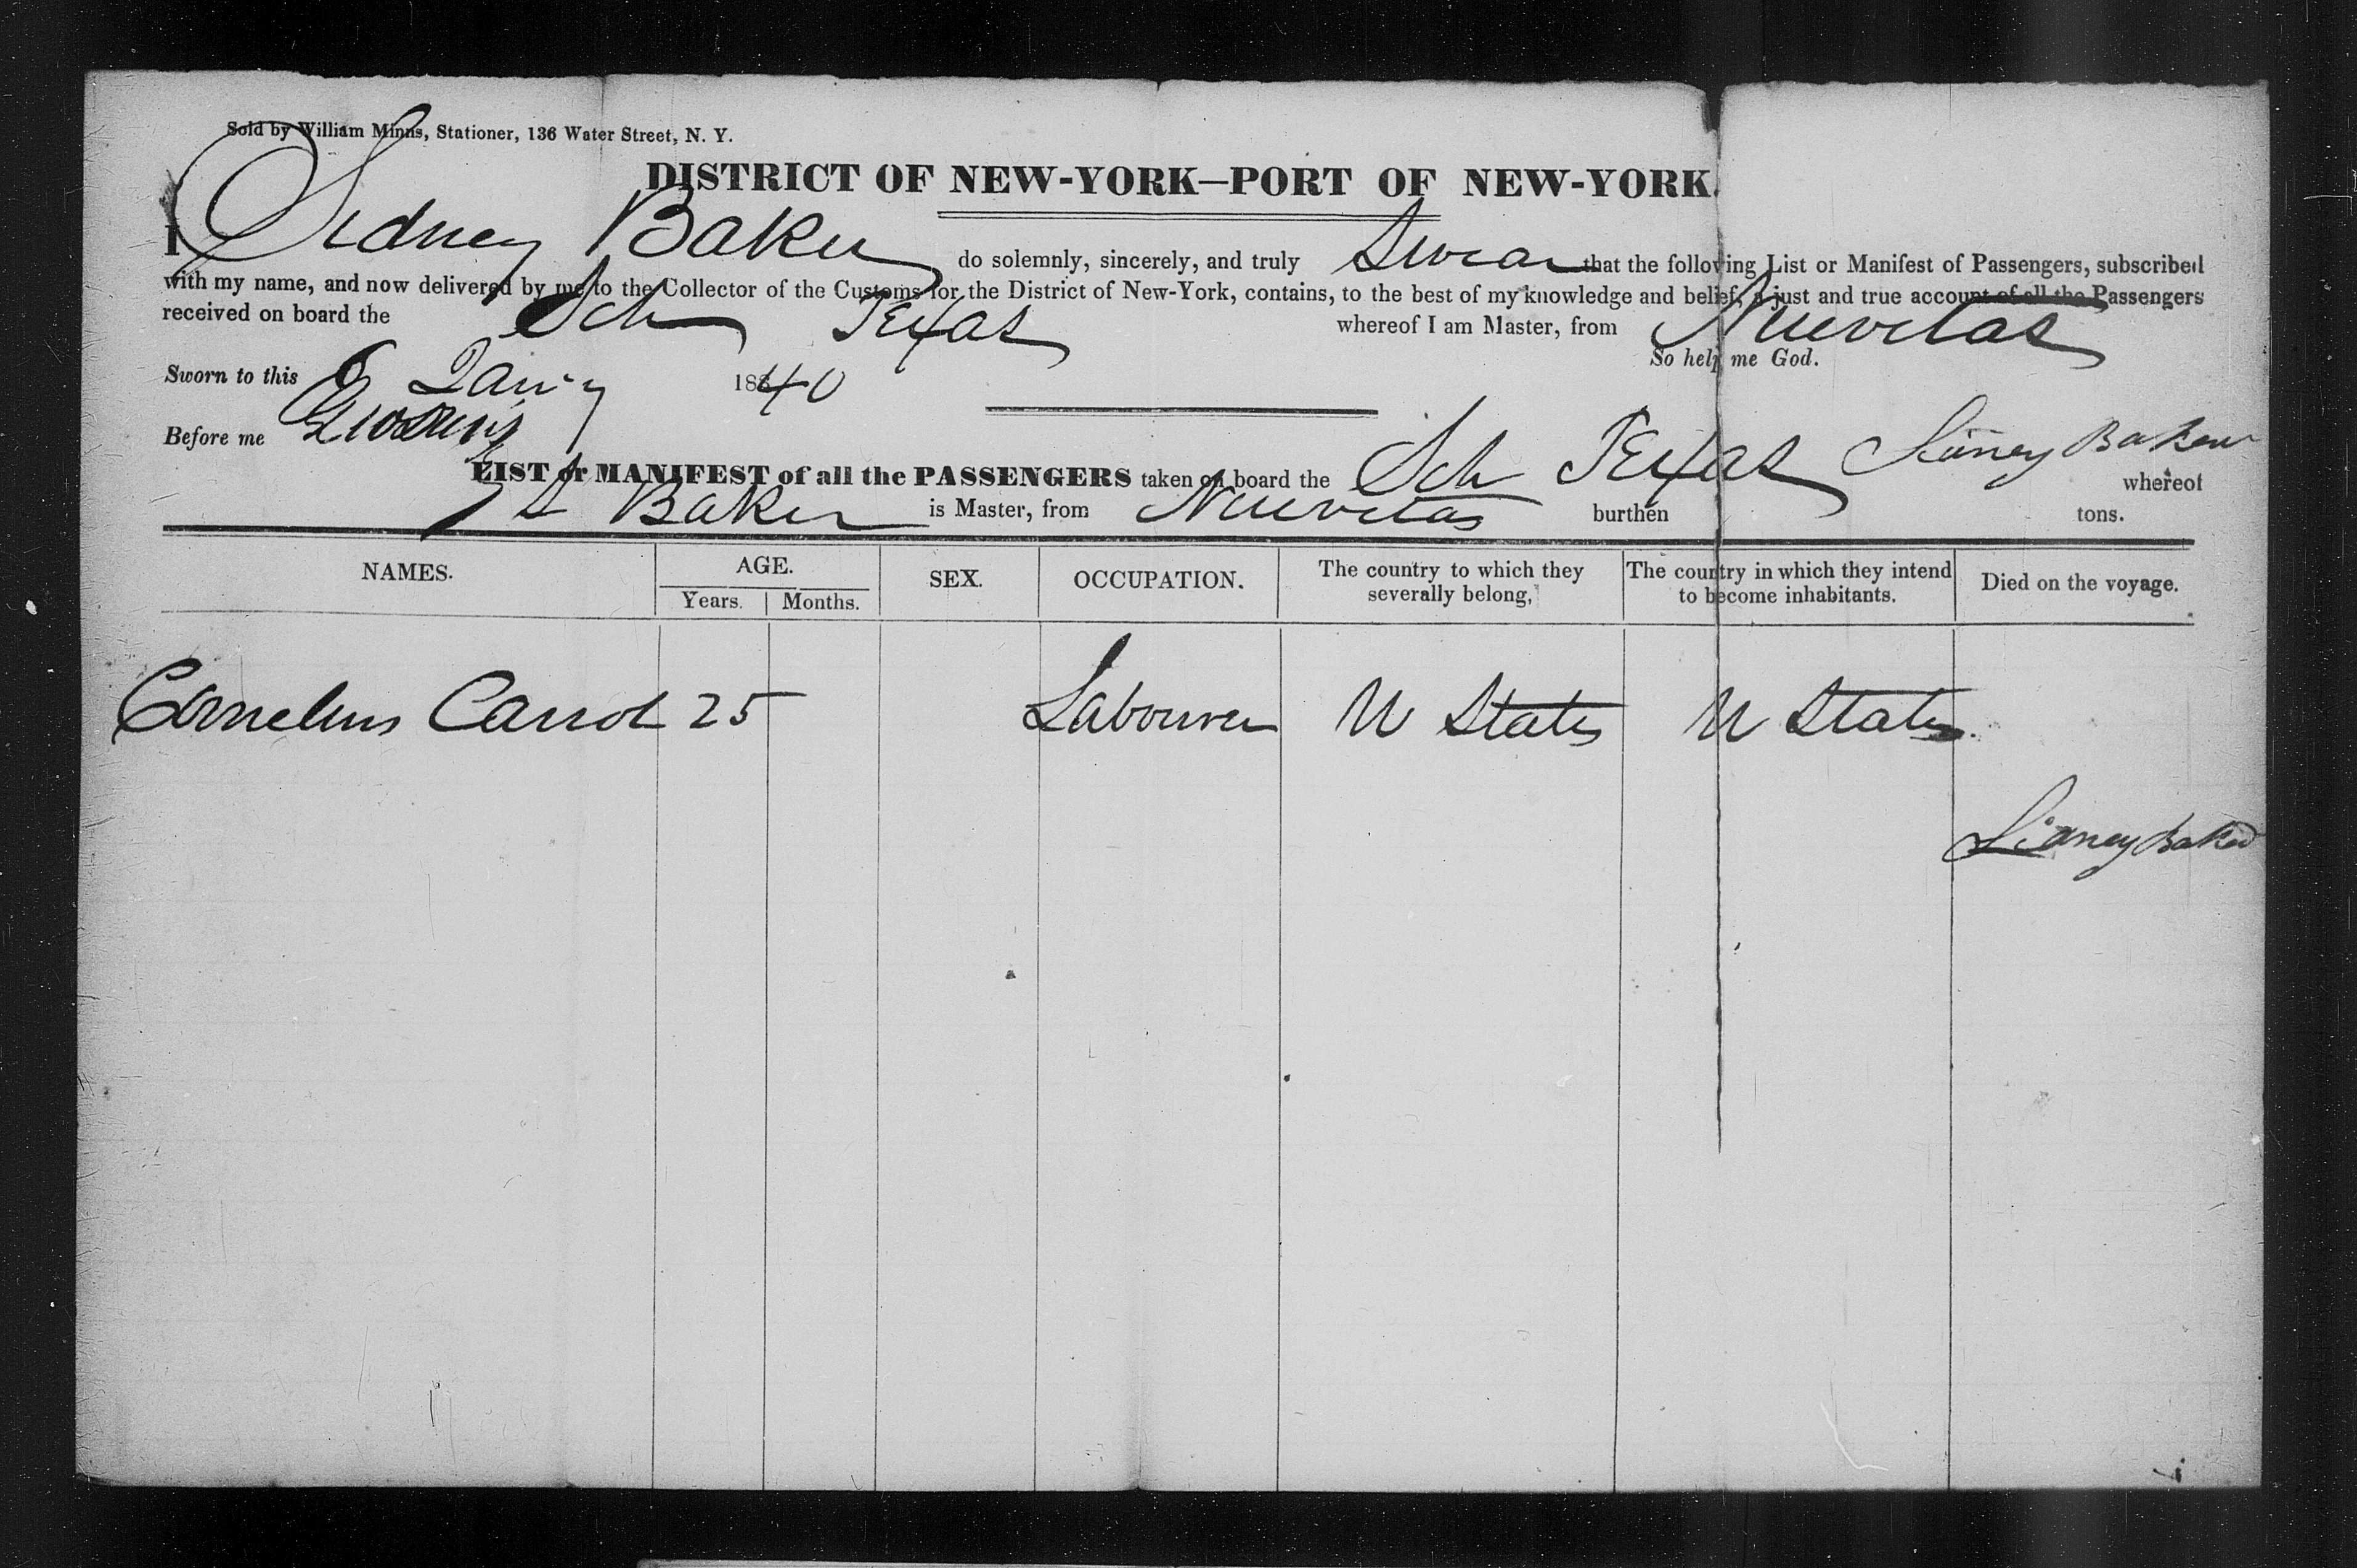 Sold by William Minns, Stationer, 136 Water Street, N. Y.
DISTRICT OF NEW-YORK—PORT OF NEW-YORK.
I Sidney Baker do solemnly, sincerely, and truly Swear that the following List or Manifest of Passengers, subscribed
with my name, and now delivered by me to the Collector of the Customs for the District of New-York, contains, to the best of my knowledge and belief, a just and true account of all the Passengers
received on board the Sch Texas whereof I am Master, from Nuevitas
So help me God.
Sworn to this 8 Jan'y 1840
Before me
Sidney Baker
LIST or MANIFEST of all the PASSENGERS taken on board the Sch Texas whereof
S Baker is Master, from Nuevitas burthen tons.
NAMES. AGE. SEX. OCCUPATION. The country to which they severally belong, The country in which they intend to become inhabitants. Died on the voyage.
Years. Months.
Cornelius Carrol 25 Labourer U States U States
Sidney Baker